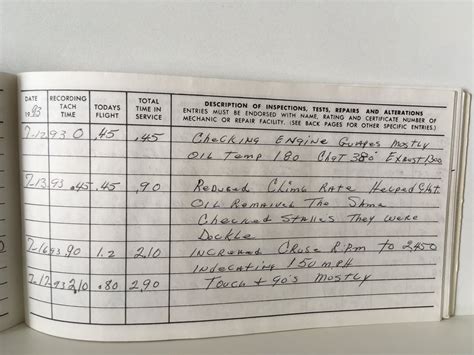 DATE 19 93 RECORDING TACH TIME TODAYS FLIGHT TOTAL TIME IN SERVICE DESCRIPTION OF INSPECTIONS, TESTS, REPAIRS AND ALTERATIONS
ENTRIES MUST BE ENDORSED WITH NAME, RATING AND CERTIFICATE NUMBER OF
MECHANIC OR REPAIR FACILITY. (SEE BACK PAGES FOR OTHER SPECIFIC ENTRIES.)
7-12-93 0 .45 .45 Checking Engine Guages Mostly
Oil Temp 180 380°
7-13-93 .45 .45 .90 Reduced Climb Rate Helped
Oil Remained The Same
Checked Stalles They Were
7-16-93 .90 1.2 2.10 Increased Cruse R.P.M to 2,450
Indecating 150 MPH
7-17-93 2.10 .80 2.90 Touch + go's Mostly